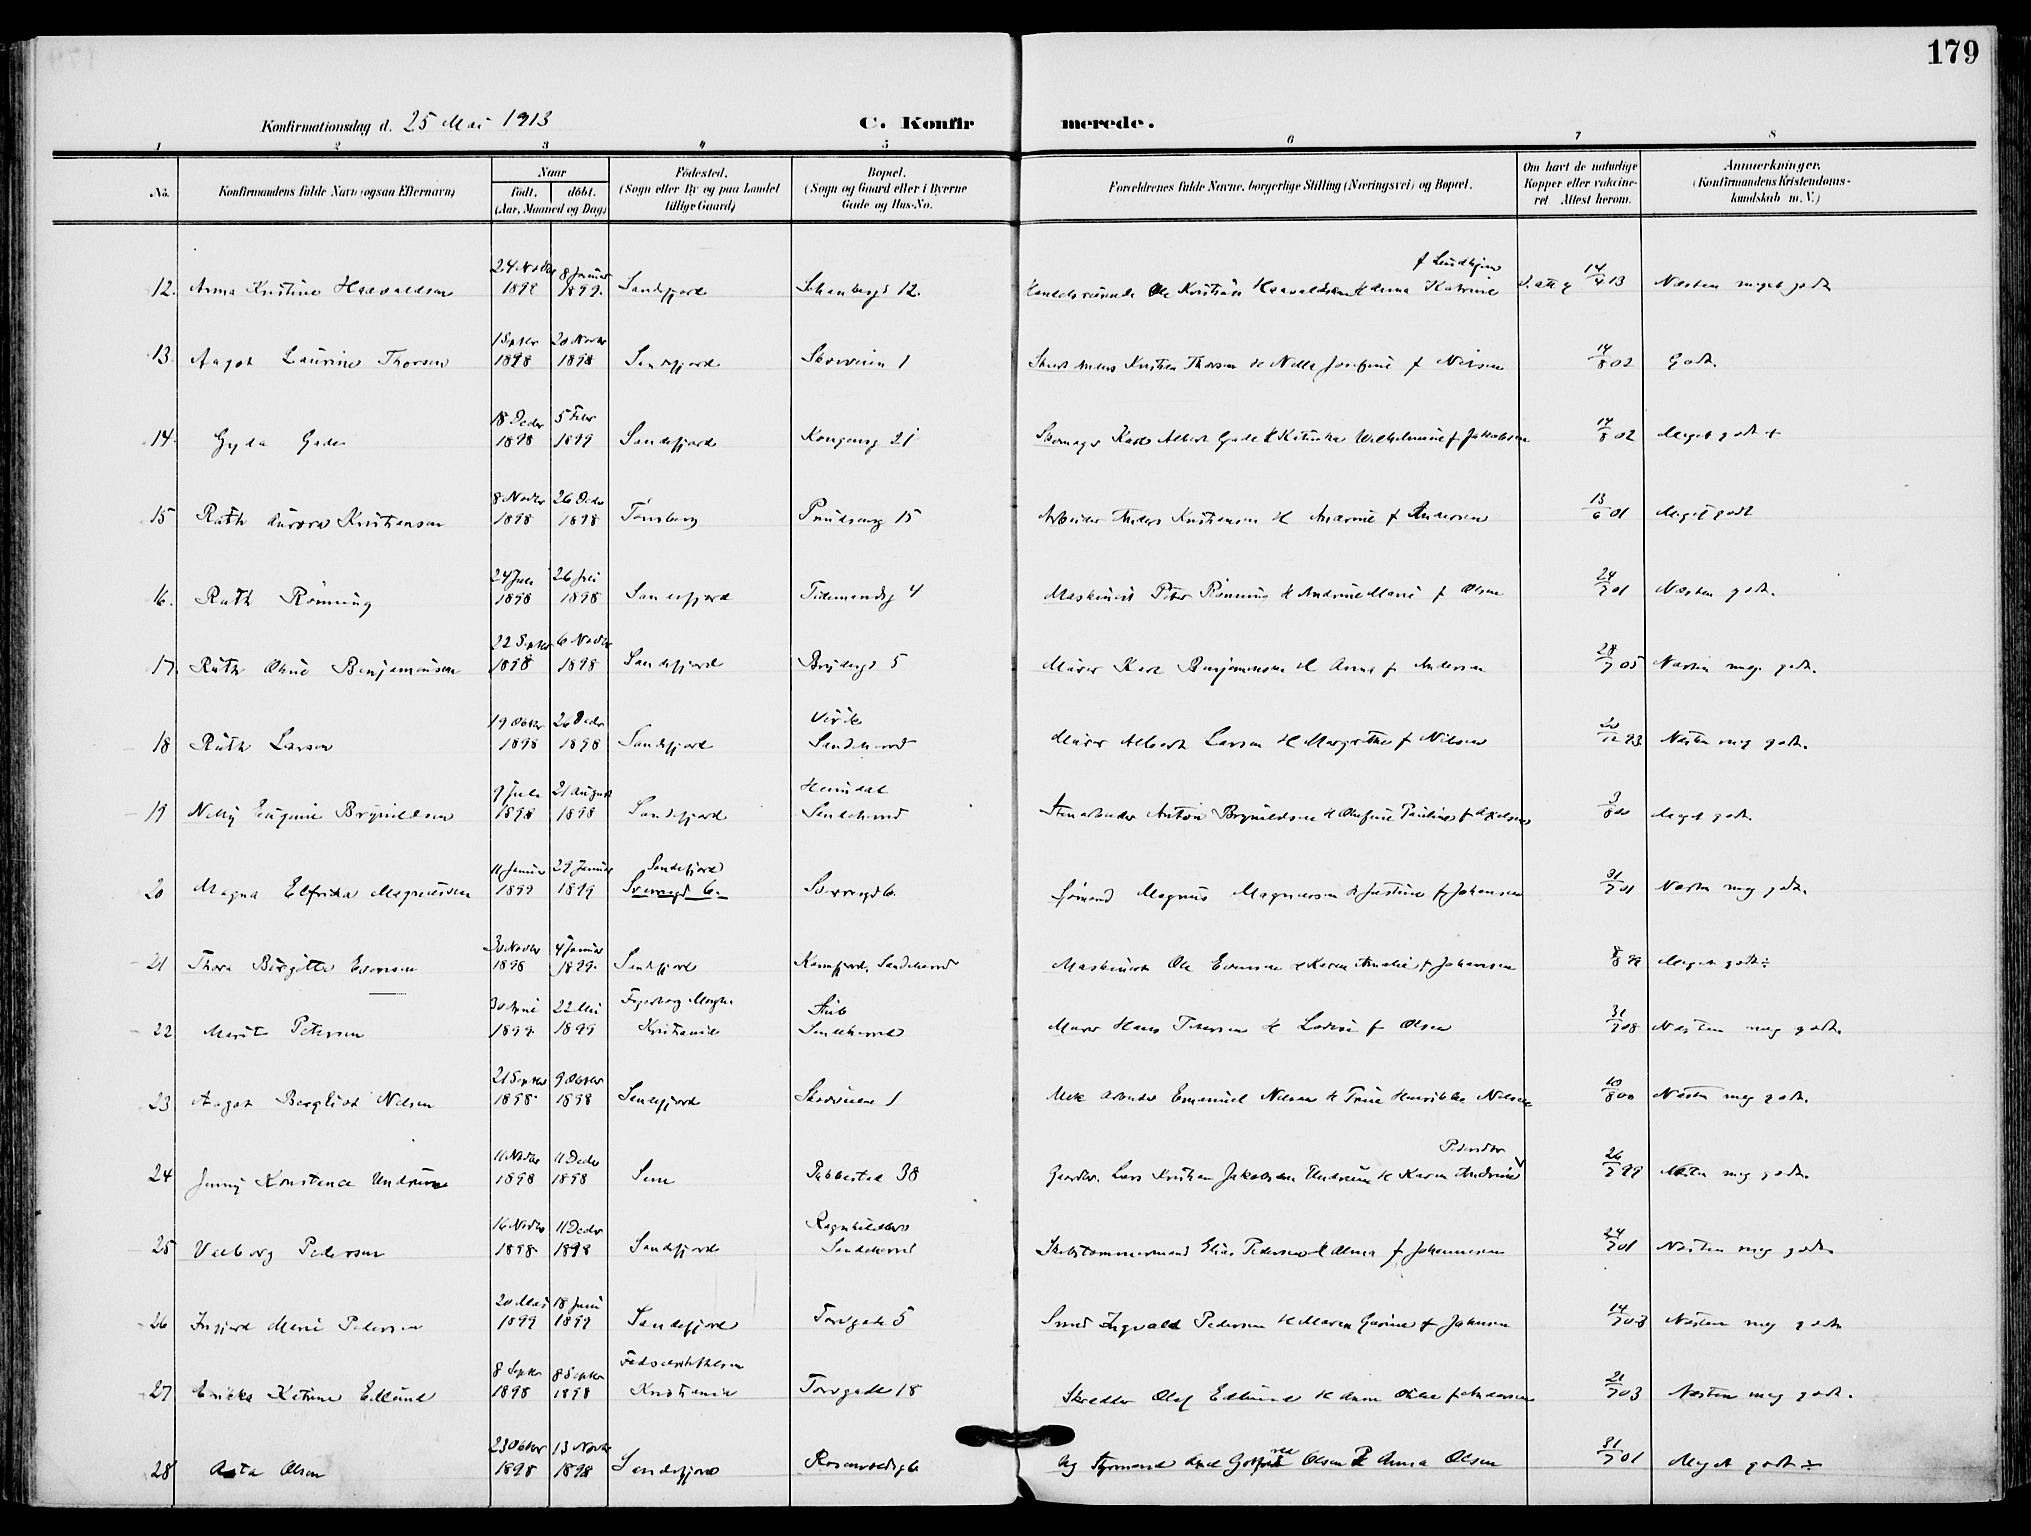 179
Konfirmationsdag d. 25 Mai 1913 C. Konfirmerede.
1 2 3 4 5 6 7 8
No. Konfirmandens fulde Navn (ogsaa Efternavn) Naar født. døbt. (Aar, Maaned og Dag) Fødested. (Sogn eller By og paa Landet tillige Gaard) Bopæl. (Sogn og Gaard eller i Byerne Gade og Hus-No. Forældrenes fulde Navne, borgerlige Stilling (Næringsvei) og Bopæl. Om havt de naturlige Kopper eller vaccineret. Attest herom. Anmerkninger. (Konfirmandens Kristendomskundskab m. V.)
12. Anna Kristine Haavaldsen 24 Novbr 1898 8 Januar 1899. Sandefjord 12. Handelsreisende Ole Kristian Haavaldsen & Anna Katrine f Lindhjem 14/4 13 Næsten meget godt
13. Aagot Laurine Thorsen 1 Septbr 1898 20 Novbr 1898 Sandefjord Skoveien 1 Kristian Thorsen & Josefine f Nilsen 14/8 02 Godt.
14. Gyda Gade 18 Decbr 1898 5 Febr 1899 Sandefjord Kongensg 21 Skomager Karl Albert Gade & Wilhelmine f Jakobsen 14/8 02 Meget godt +
15 Ruth Aurora Kristiansen 8 Novbr 1898 26 Decbr 1898 Tønsberg 15 Arbeider Anders Kristiansen & f Andersen 13/6 01 Meget godt
16. Ruth Rønning 24 Juni 1898 26 Juli 1898 Sandefjord Tidemandsg 4 Maskinist Peter Rønning & Andrine Marie f Olsen 24/7 01 Næsten godt.
17. Ruth Benjaminsen 22 Septbr 1898 6 Novbr 1898 Sandefjord 5 Murer Karl Benjaminsen & Anna f Andersen 28/7 05 Næsten meg. godt.
18 Ruth Larsen 19 Oktbr 1898 26 Decbr 1898 Sandefjord Virik Sandeherred Murer Albert Larsen & Margrethe f Nilsen Næsten meg godt.
19 Nelly Eugenie Brynildsen 9 Juli 1898 21 August 1898 Sandefjord Heimdal Sandeherred Stenarbeider Anton Brynildsen & Olefine Pauline f Akselsen Meget godt.
20 Magna Elfrida Magnussen 11 Januar 1899 29 Januar 1899 Sandefjord Sverresgd 6. Sverresgd 6. Sømand Magnus Magnussen & Justine f Johansen 31/7 01 Næsten meg godt.
21 Thora Birgitte Evensen 30 Novbr 1898 4 Januar 1899. Sandefjord Kamfjord, Sandeherred Maskinist Ole Evensen & Karen Amalie f Johansen 8/8 99 Meget godt ÷
22 Marit Petersen 30 April 1899 22 Mai 1899 Kristiania Stub Sandeherred Murer Hans Petersen & Lovise f Olsen 31/7 08 Næsten meg godt.
23 Aagot Bergliot Nilsen 21 Septbr 1898 9 Oktbr 1898 Sandefjord Skoveien 1 Mek Arbeider Emanuel Nilsen & Trine Henrikke Nilsen 10/8 00 Næsten meg godt.
24 Jenny Konstance Undrum 11 Novbr 1898 11 Decbr 1898 Sem Pukkestad 38 Gaardbr. Lars Kristian Jakobsen Undrum & Karen Andrine Pedersdtr 26/7 99 Næsten meg godt.
25 Valborg Pedersen 16 Novbr 1898 11 Decbr 1898 Sandefjord Ragnhildsro Sandeherred Skibstømmermand Elias Pedersen & Alma f Johannesen 24/7 01 Næsten meg godt.
26 Ingjerd Marie Pedersen 20 Mai 1899 18 Juni 1899 Sandefjord Torvgade 5 Smed Ingvald Pedersen & Maren Gurine f Johnsen Næsten meg godt
27 Ericka Katrine Edlund 8 Septbr 1898 8 Septbr 1898 Fødselsstiftelsen Kristiania Torvgade 18 Skredder Olaf Edlund & f Andersen 21/7 03 Næsten meg godt.
28 Asta Olsen 23 Oktbr 1898 13 Novbr 1898 Sandefjord Rosenvoldsg 6 Styrmand Axel Gotfred Olsen & Anna Olsen 31/7 01 Meget godt ÷